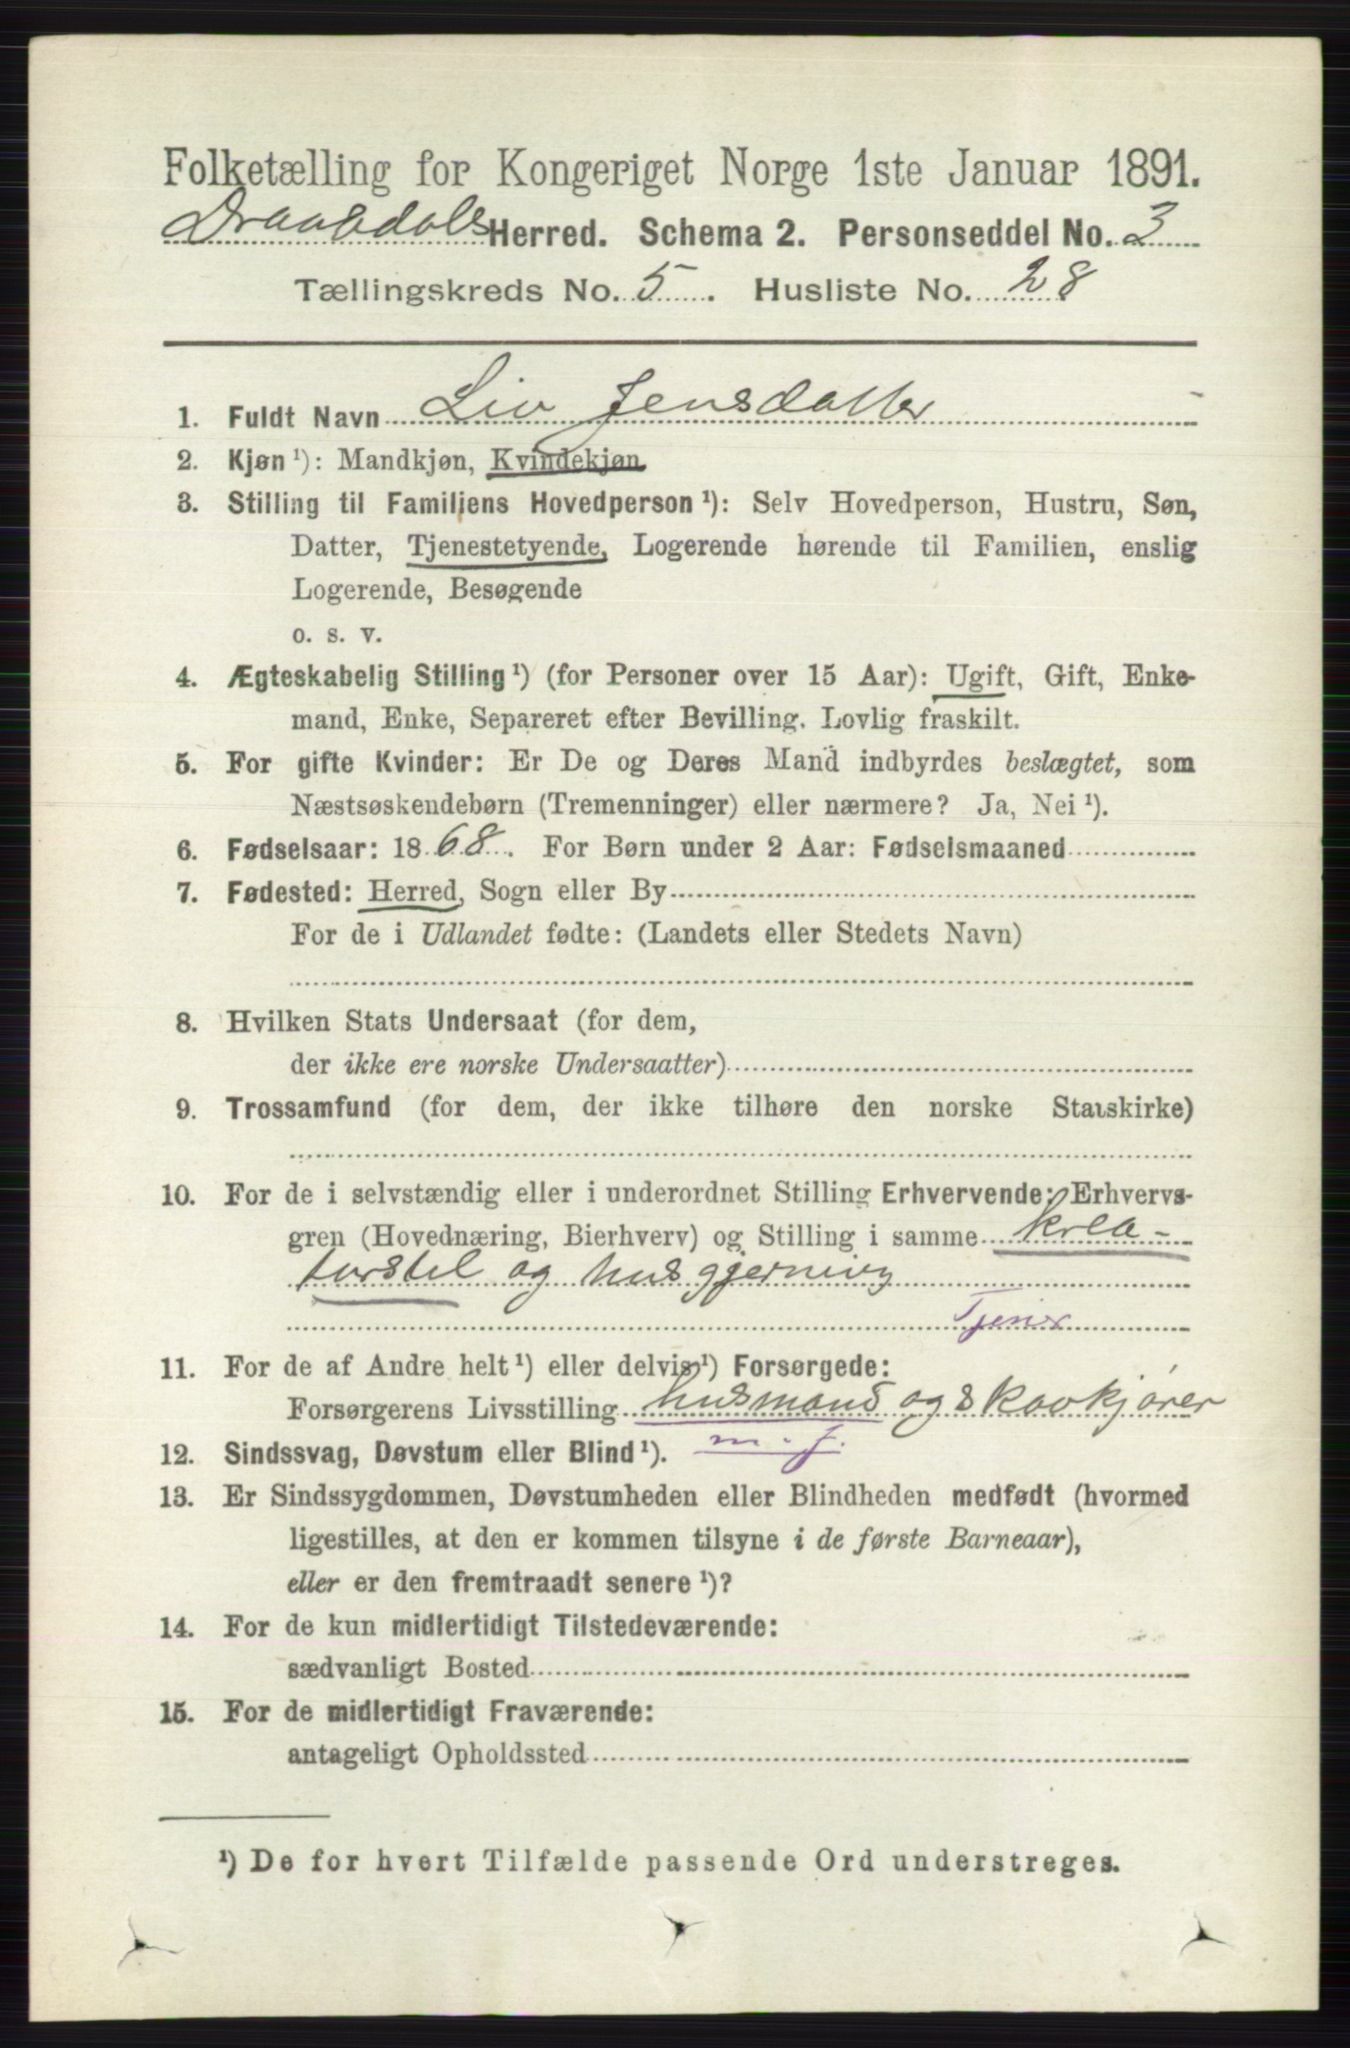 Folketælling for Kongeriget Norge 1ste Januar 1891.
Draabdals Herred. Schema 2. Personseddel No. 3
Tællingskreds No. 5. Husliste No. 28
1. Fuldt Navn Liv Jensdatter
2. Kjøn ¹): Mandkjøn, Kvindekjøn
3. Stilling til Familiens Hovedperson ¹): Selv Hovedperson, Hustru, Søn,
Datter, Tjenestetyende, Logerende hørende til Familien, enslig
Logerende, Besøgende
o. s. v.
4. Ægteskabelig Stilling ¹) (for Personer over 15 Aar): Ugift, Gift, Enke-
mand, Enke, Separeret efter Bevilling. Lovlig fraskilt.
5. For gifte Kvinder: Er De og Deres Mand indbyrdes beslægtet, som
Næstsøskendebørn (Tremenninger) eller nærmere? Ja, Nei ¹).
6. Fødselsaar: 1868. For Børn under 2 Aar: Fødselsmaaned
7. Fødested: Herred, Sogn eller By
For de i Udlandet fødte: (Landets eller Stedets Navn)
8. Hvilken Stats Undersaat (for dem,
der ikke ere norske Undersaatter)
9. Trossamfund (for dem, der ikke tilhøre den norske Statskirke)
10. For de i selvstændig eller i underordnet Stilling Erhvervende: Erhvervs-
gren (Hovednæring, Bierhverv) og Stilling i samme krea-
turstel og husgjerning
Tjener
11. For de af Andre helt ¹) eller delvis ¹) Forsørgede:
Forsørgerens Livsstilling husmand og skovkjører
12. Sindssvag, Døvstum eller Blind ¹). m. j.
13. Er Sindssygdommen, Døvstumheden eller Blindheden medfødt (hvormed
ligestilles, at den er kommen tilsyne i de første Barneaar),
eller er den fremtraadt senere ¹)?
14. For de kun midlertidigt Tilstedeværende:
sædvanligt Bosted
15. For de midlertidigt Fraværende:
antageligt Opholdssted
¹) De for hvert Tilfælde passende Ord understreges.